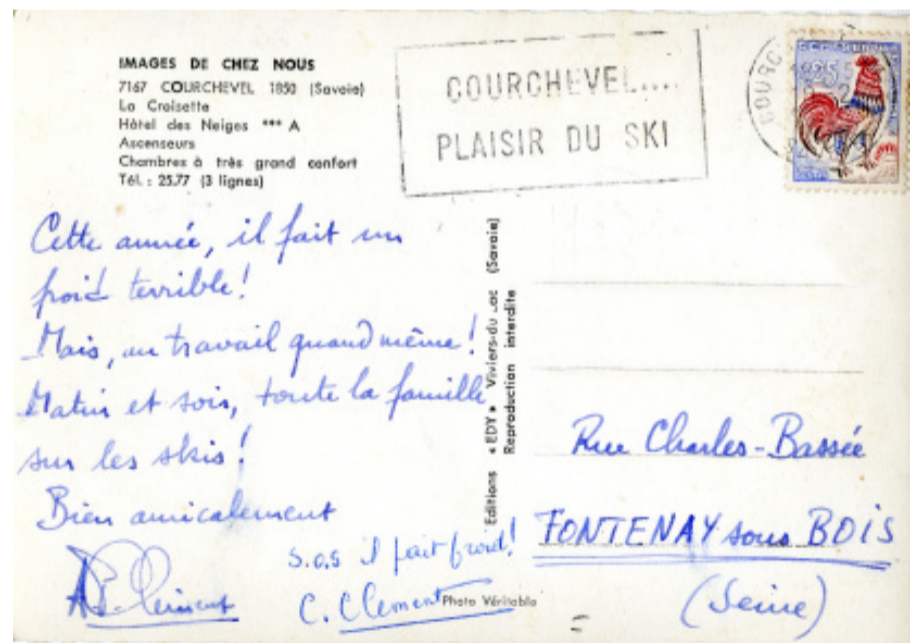 IMAGES DE CHEZ NOUS
7167 COURCHEVEL 1850 (Savoie)
La Croisette
Hôtel des Neiges *** A
Ascenseurs
Chambres à très grand confort
Tél. : 25.77 (3 lignes)
COURCHEVEL....
PLAISIR DU SKI
Cette année, il fait un
froid terrible!
Mais, au travail quand même!
Matin et soir, toute la famille
sur les skis!
Bien amicalement
Clément
S.O.S il fait froid!
C. Clément
Editions « EDY » Viviers-du-Lac (Savoie)
Reproduction interdite
Photo Véritable
Rue Charles-Bassée
FONTENAY sous BOIS
(Seine)